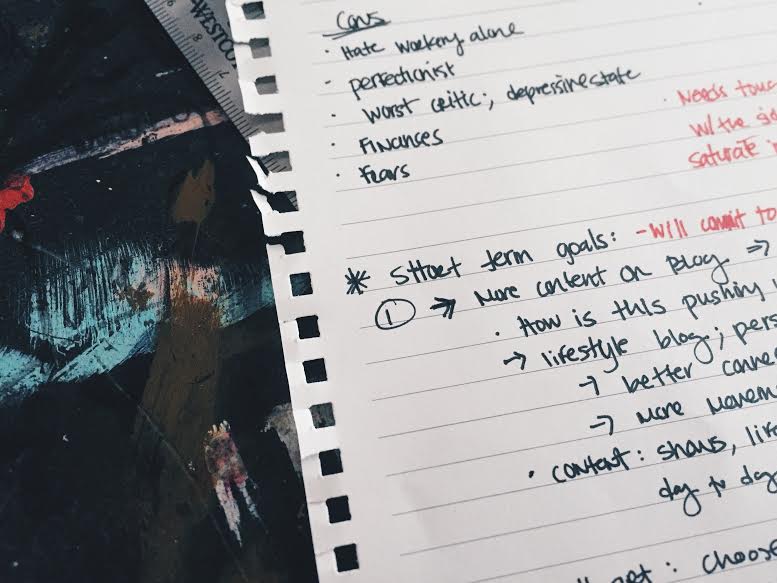 WESTCO
Cons
· Hate working alone
· perfectionist
· worst critic; depressive state
· Finances
· Fears
· Needs touc
w/ the sid
saturate i
* Short term goals: - Will commit to
① → More content on blog →
· How is this pushing
→ lifestyle blog; pers
→ better conne
→ More Movem
· content: shows, life
day to day
: choose